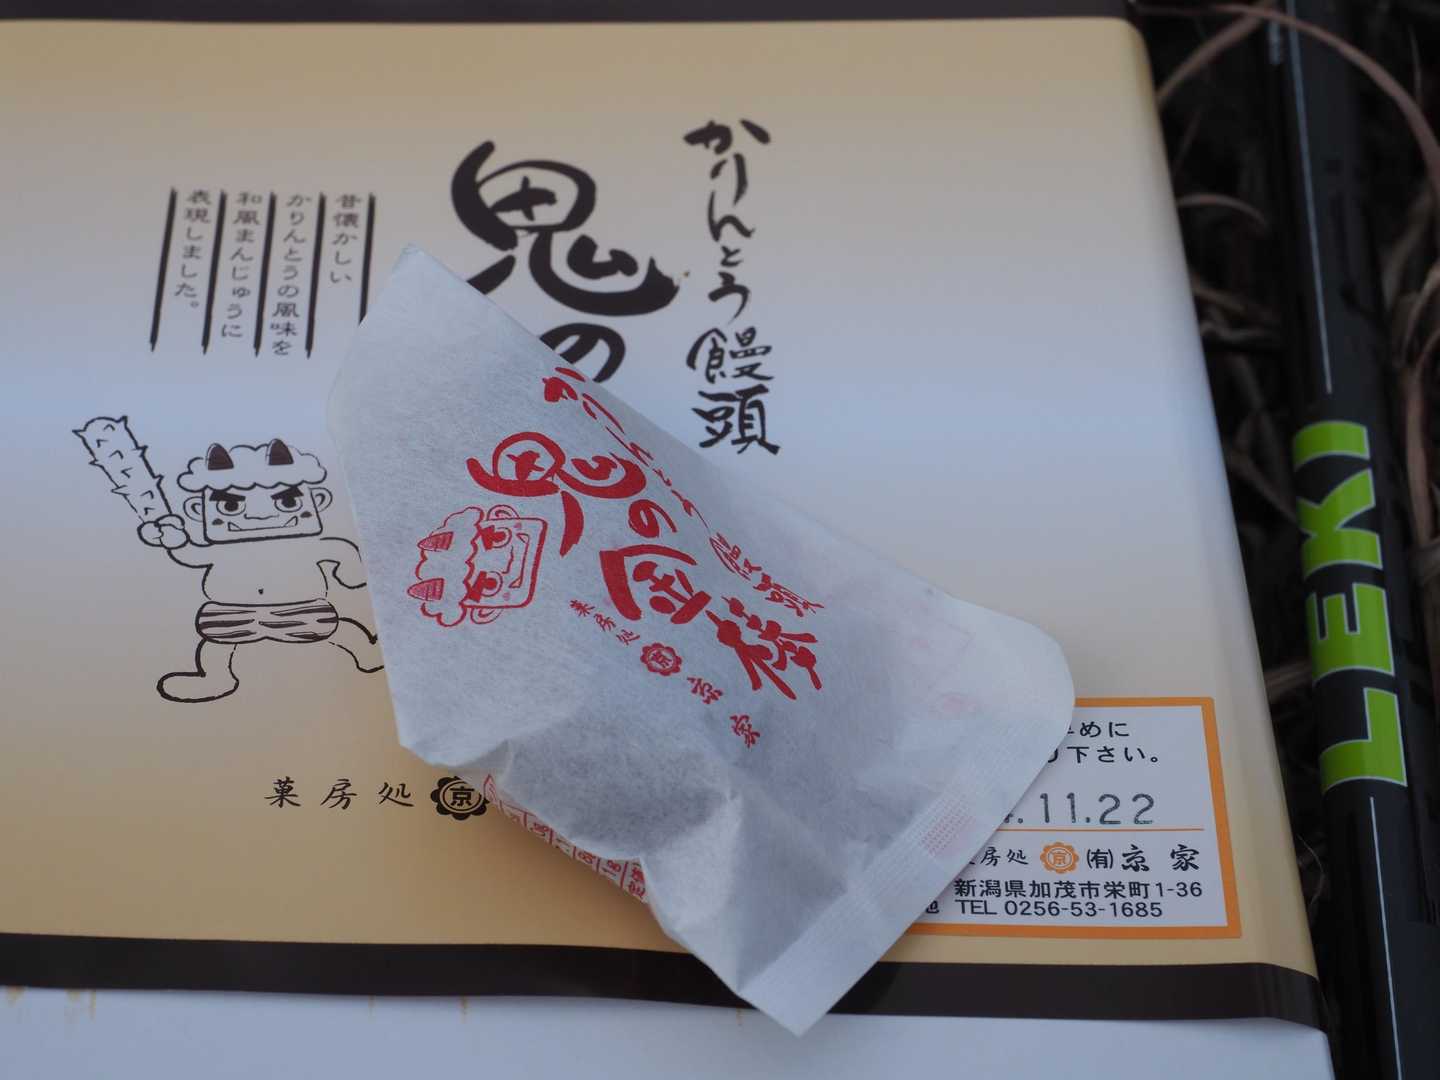 かりんとう饅頭
鬼の
昔懐かしい
かりんとうの風味を
和風まんじゅうに
表現しました。
菓房処 京
かりんとう饅頭
鬼の金棒
菓房処 京 京家
めに
下さい。
.11.22
房処 京 ㈲京家
新潟県加茂市栄町1-36
地 TEL 0256-53-1685
LEKI